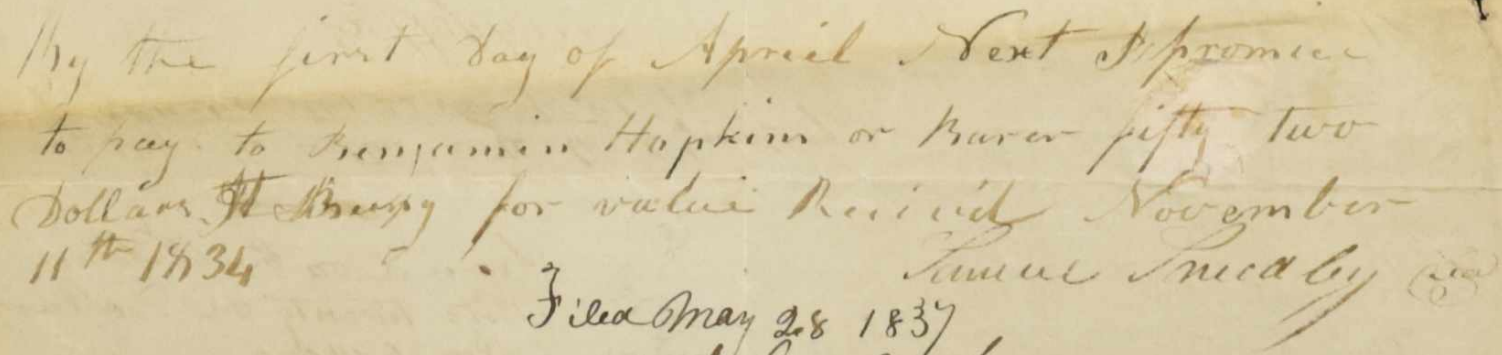 By the first Day of Apreil Next I promice
to pay to Benjamin Hopkins or Barer fifty two
Dollars It Being for value Recievd November
11th 1834
Samuel Smedley
Filed May 28 1837